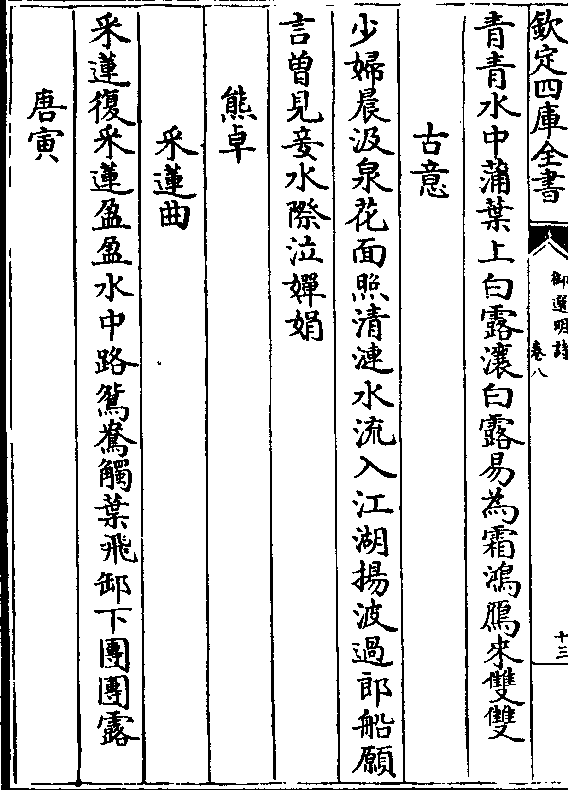 欽定四庫全書
御選明詩
卷八
十三
青青水中蒲葉上白露瀼白露易為霜鴻鴈來雙雙
古意
少婦晨汲泉花面照清漣水流入江湖揚波過郎船願
言曽見妾水際泣嬋娟
熊卓
采蓮曲
采蓮復采蓮盈盈水中路鴛鴦觸葉飛卸下團團露
唐寅